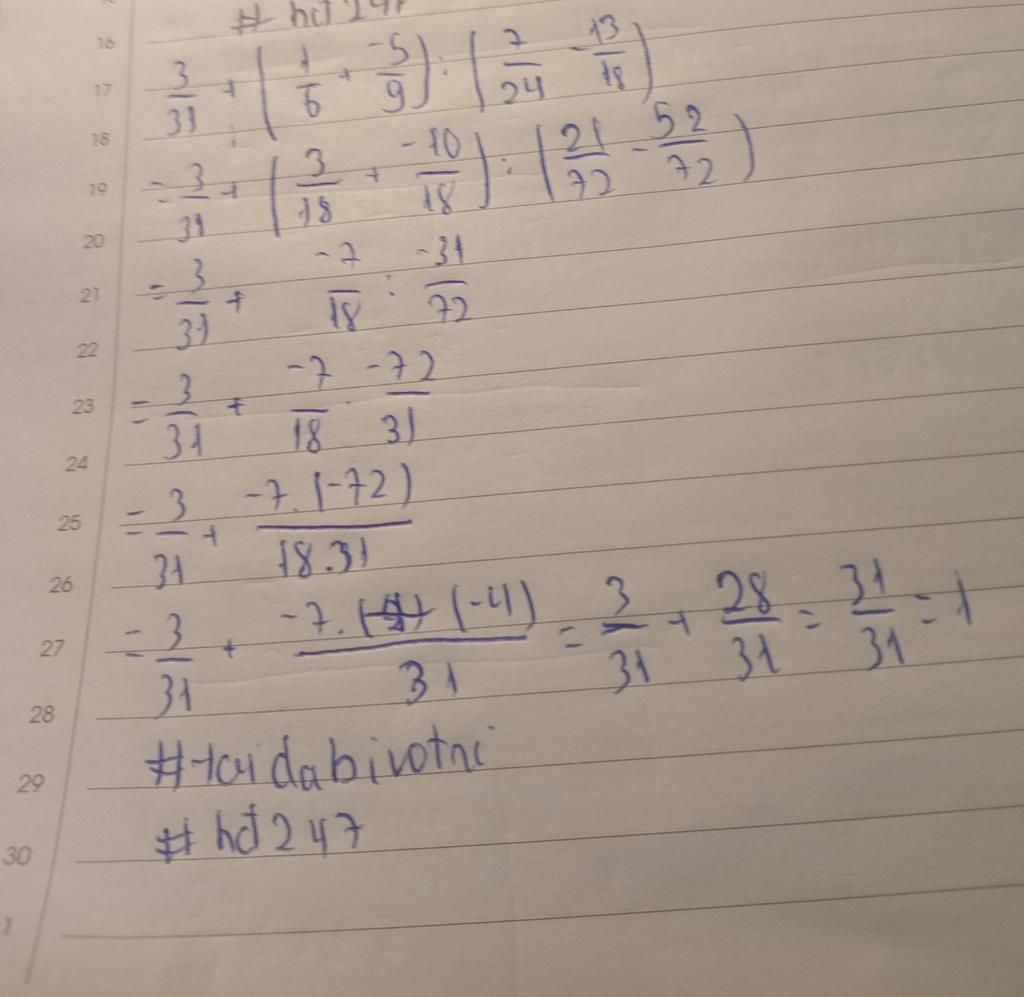 # hđ 247
16
17 3/31 + (1/6 + -5/9) : (7/24 - 13/18)
18
19 = 3/31 + (3/18 + -10/18) : (21/72 - 52/72)
20
21 = 3/31 + -7/18 : -31/72
22
23 = 3/31 + -7/18 . -72/31
24
25 = 3/31 + -7.(-72)/18.31
26
27 = 3/31 + -7.(-4)/31 = 3/31 + 28/31 = 31/31 = 1
28
29 #taidabivotni
30 # hđ 247